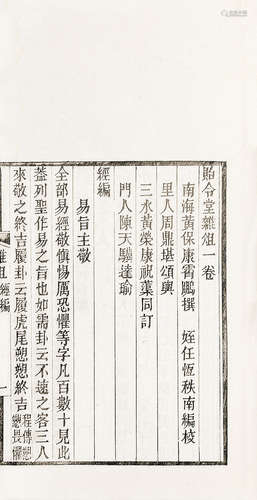 貽令堂雜俎一卷
南海黃保康霄鵬撰 姪任恆秩南編校
里人周鼎堪頌輿
三水黃榮康祝蕖同訂
門人陳天驥達瑜
經編
易旨主敬
全部易經敬慎惕厲恐懼等字凡百數十見此
蓋列聖作易之旨也如需卦云不速之客三人
來敬之終吉履卦云履虎尾愬愬終吉程傳愬愬畏懼
雜俎 經編 一